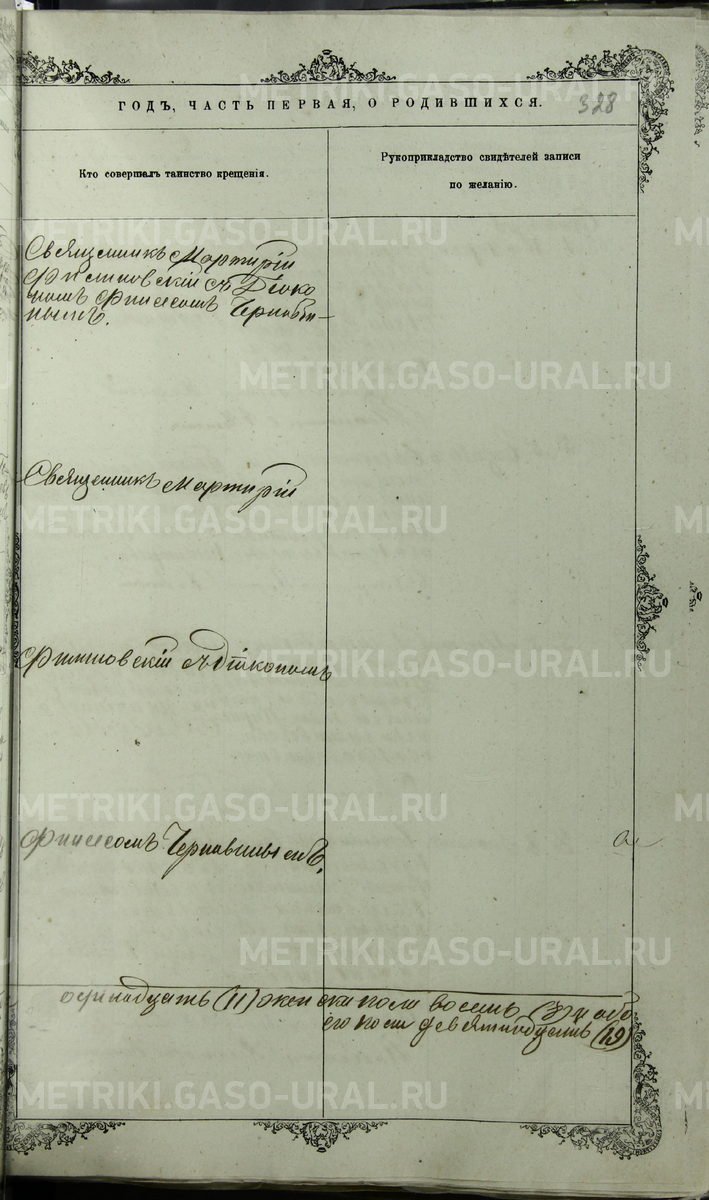 ГОДЪ, ЧАСТЬ ПЕРВАЯ, О РОДИВШИХСЯ.
328
Кто совершалъ таинство крещенія.
Рукоприкладство свидѣтелей записи
по желанію.
Священникъ Мартирій
Филиповскій съ Діако
номъ Финеесомъ Чернавѣ
нымъ.
Священникъ Мартирій
Филиповскій съ Дїакономъ
Финеесомъ Чернавинымъ.
одинадцать (11) женска пола восемь (8) и обо
его пола девятнадцать (19)
METRIKI.GASO-URAL.RU